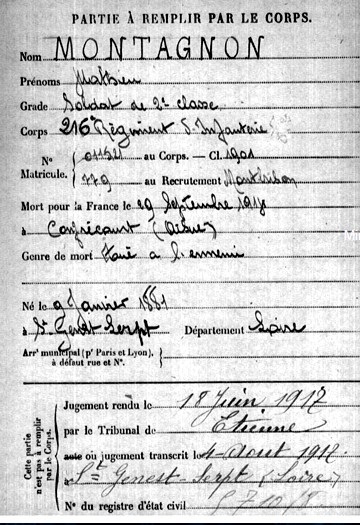 PARTIE À REMPLIR PAR LE CORPS.
Nom MONTAGNON
Prénoms Mathieu
Grade Soldat de 2e classe
Corps 216e Régiment d'Infanterie
N° 01152 au Corps. — Cl. 1901
Matricule. 779 au Recrutement Montbrison
Mort pour la France le 29 Septembre 191
à Confrécourt (Aisne)
Genre de mort Tué à l'ennemi
Né le 9 Janvier 1881
à St Genest Lerpt Département Loire
Arrt municipal (pr Paris et Lyon),
à défaut rue et N°.
Cette partie n'est pas à remplir par le Corps.
Jugement rendu le 18 Juin 1917
par le Tribunal de Etienne
acte ou jugement transcrit le 4 Août 1917
à St Genest-Lerpt (Loire)
N° du registre d'état civil